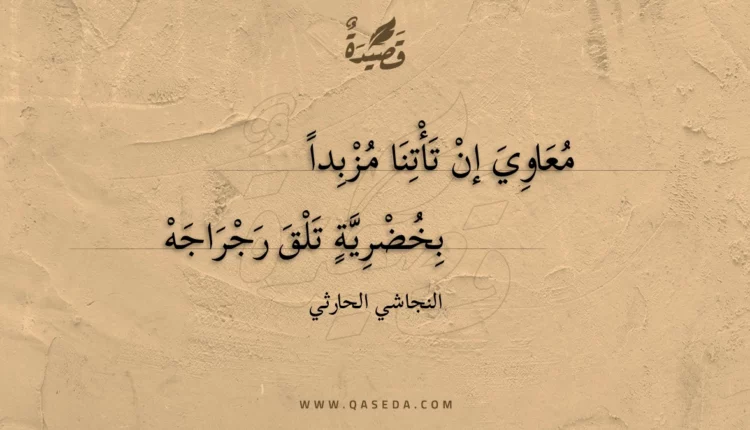 قَصِيْدَةٌ
مُعَاوِيَ إنْ تَأْتِنَا مُزْبِداً
بِخُضْرِيَّةٍ تَلْقَ رَجْرَاجَهْ
النجاشي الحارثي
WWW.QASEDA.COM